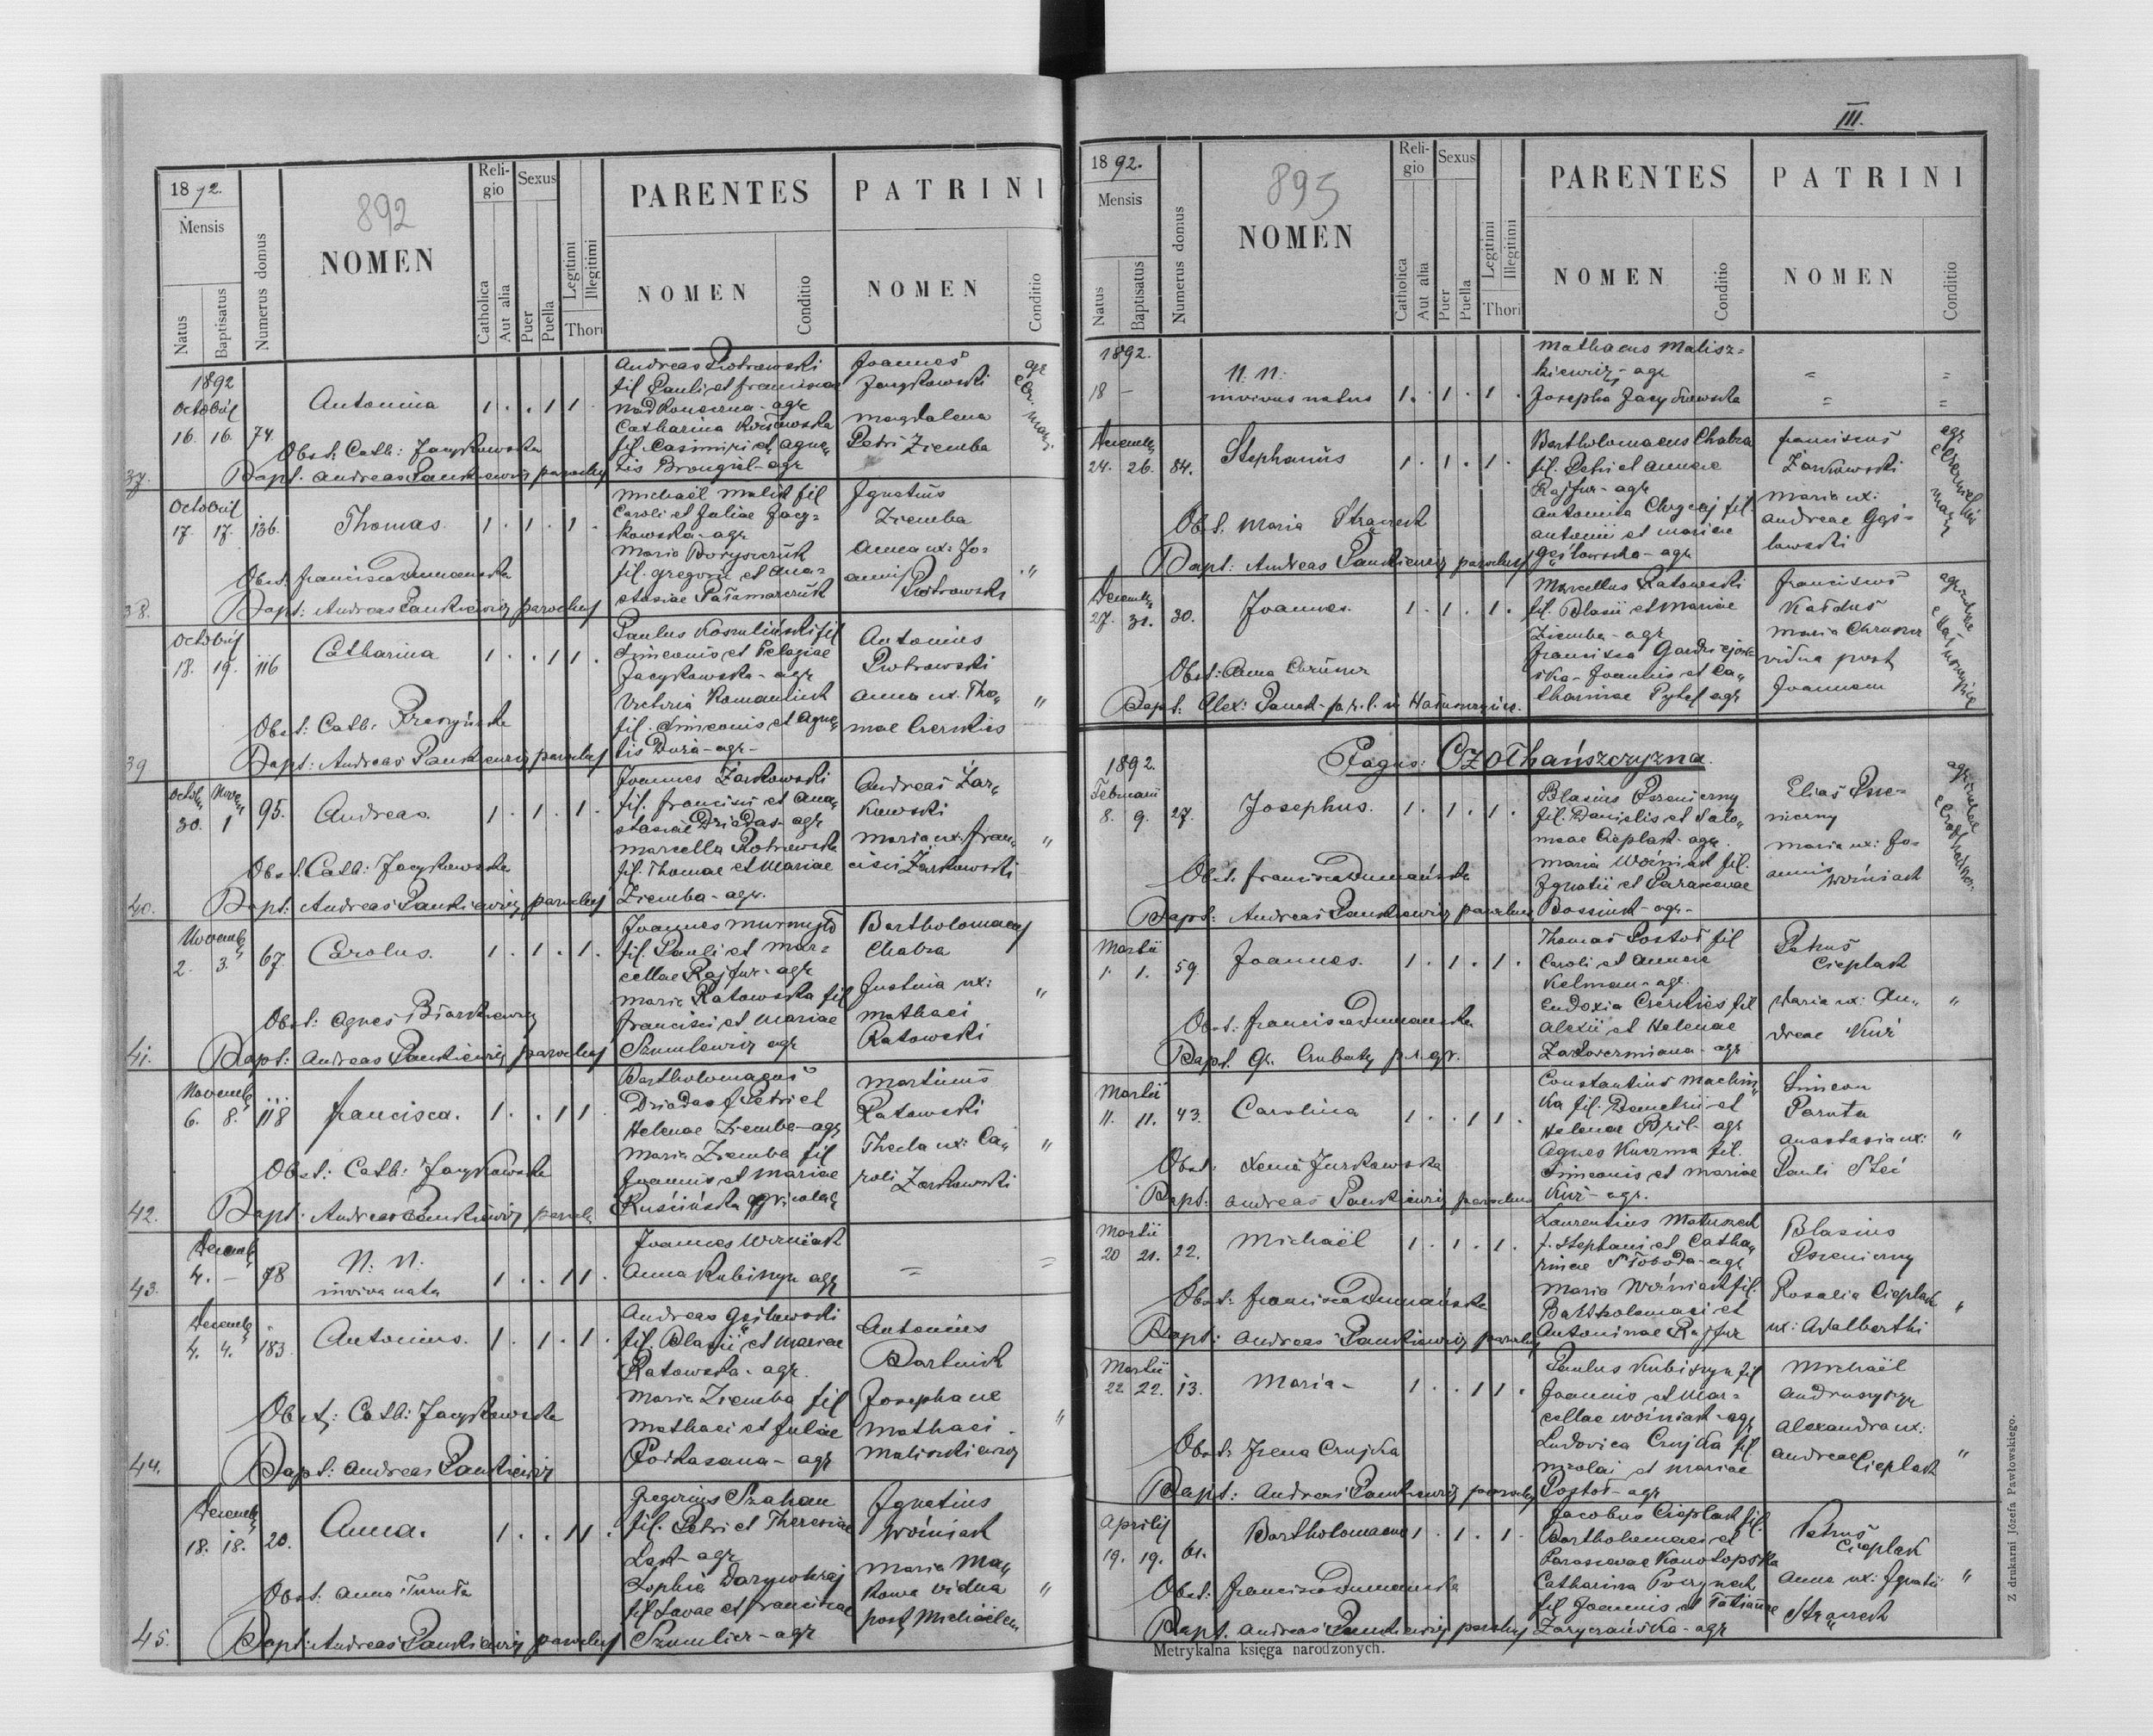 1892.
Mensis
Natus
Baptisatus
Numerus domus
892
NOMEN
Reli-
gio
Catholica
Aut alia
Sexus
Puer
Puella
Legitimi
Illegitimi
Thori
PARENTES
NOMEN
Conditio
PATRINI
NOMEN
Conditio
1892
Octobris
16. 16. 74.
Antonina
1 . . 1 1 .
Andreas Piotrowski
fil. Pauli et Franciscae
agr
Catharina
fil. Casimiri et Agne„
tis - agr
Joannes
Jacykowski
Magdalena
Petri Ziemba
Obst: Cath: Jacykowska
37.
Bapt. Andreas Pankiewicz parochus
Octobris
17. 17. 136.
Thomas.
1 . 1 . 1 .
Michaël Malik fil
Caroli et Juliae Jacy=
kowska - agr
Maria Boryszczuk
fil. Gregorii et Ana=
stasiae Pałamarczuk
Ignatius
Ziemba
Anna ux: Jo=
annis
Piotrowski
"
Obst: Francisca Dumanska
38.
Bapt: Andreas Pankiewicz parochus
Octobris
18. 19. 116
Catharina
1 . . 1 1 .
Paulus Koszuliński fil
Simeonis et Pelagiae
Jacykowska - agr
Victoria Romaniuk
fil. Simeonis et Agne„
tis Duża - agr -
Antonius
Piotrowski
Anna ux. Tho„
mae Czerkies
"
Obst: Cath:
39
Bapt: Andreas Pankiewicz parochus
30. 1 95.
Andreas.
1 . 1 . 1 .
Joannes Żarkowski
fil. Francisci et Ana„
stasiae Dziadas - agr
Marcella Piotrowska
fil. Thomae et Mariae
Ziemba - agr.
Andreas Żar„
kowski
Maria ux. Fran„
cisci Żarkowski
"
Obst. Cath: Jacykowska
40.
Bapt: Andreas Pankiewicz parochus
Novemb
2. 3. 67.
Carolus.
1 . 1 . 1 .
Joannes
fil. Pauli et Mar=
cellae Rajfur - agr
Maria Ratowska fil
Francisci et Mariae
Szumlewicz agr
Bartholomaeus
Chabza
Justina ux:
Mathaei
Ratowski
"
Obst: Agnes
41.
Bapt: Andreas Pankiewicz parochus
Novemb
6. 8. 118
Francisca.
1 . . 1 1 .
Bartholomaeus
Dziadas f. Petri et
Helenae Ziemba - agr
Maria Ziemba fil
Joannis et Mariae
Kuścińska agricolae
Martinus
Ratowski
Thecla ux: Ca„
roli Żarkowski
"
Obst: Cath: Jacykowska
42.
Bapt: Andreas Pankiewicz paroch
Decemb
4. - 78
N. N.
inviva nata
1 . . 1 1 .
Joannes Woźniak
Anna Kubiszyn agr
=
=
43.
Decemb
4. 4. 183.
Antonius.
1 . 1 . 1 .
Andreas Gęsławski
fil. Blasii et Mariae
Ratowska - agr.
Maria Ziemba fil
Mathaei et Juliae
Podkasana - agr
Antonius
Bartnik
Josepha ux
Mathaei
Maliszkiewicz
"
Obst: Cath: Jacykowska
44.
Bapt: Andreas Pankiewicz
Decemb
18. 18. 20.
Anna.
1 . . 1 1 .
Gregorius
fil. Petri et Theresiae
- agr
Sophia
fil. Savae et Franciscae
- agr
Ignatius
Woźniak
Maria Ma„
kowa vidua
post Michaëlem
"
Obst: Anna
45.
Bapt: Andreas Pankiewicz parochus
III.
1892.
Mensis
Natus
Baptisatus
Numerus domus
895
NOMEN
Reli-
gio
Catholica
Aut alia
Sexus
Puer
Puella
Legitimi
Illegitimi
Thori
PARENTES
NOMEN
Conditio
PATRINI
NOMEN
Conditio
1892.
18 -
N. N.
invivus natus
1 . 1 . 1 .
Mathaeus Malisz=
kiewicz - agr
Josepha
=
=
=
=
Decemb
24. 26. 84.
Stephanus
1 . 1 . 1 .
Bartholomaeus Chabza
fil. Petri et Annae
Rajfur - agr
Antonina fil.
Antonii et Mariae
Gęsławska - agr
Franciscus
Żarkowski
Maria ux:
Andreae Gęs=
ławski
Obst. Maria
Bapt: Andreas Pankiewicz parochus
Decemb
27. 31. 30.
Joannes.
1 . 1 . 1 .
Marcellus Ratowski
fil. Blasii et Mariae
Ziemba - agr
Francisca
ska - Joannis et Ca„
tharinae agr
Franciscus
Kałdus
Maria
vidua post
Joannem
Obst: Anna
Bapt: Alex:
Pagus: Czołhańszczyzna.
1892.
Februarii
8. 9. 27.
Josephus.
1 . 1 . 1 .
Blasius Pszenicrny
fil. Danielis et Salo„
meae Cieplak - agr.
Maria Woźniak fil.
Ignatii et Parasevae
- agr -
Elias Psze=
nicrny
Maria ux: Jo=
annis
Woźniak
Obst. Francisca Dumańska
Bapt: Andreas Pankiewicz parochus
Martii
1. 1. 59.
Joannes.
1 . 1 . 1 .
Thomas Postoł fil
Caroli et Annae
Kelman - agr.
Eudoxia Czerkies fil
Alexii et Helenae
- agr
Petrus
Cieplak
Maria ux: An„
dreae Kuź
"
Obst: Francisca Dumanska
Bapt. Gr.
Martii
11. 11. 43.
Carolina
1 . . 1 1 .
Constantinus Machni„
ka fil. Demetrii et
Helenae Bril - agr
Agnes Kuczma fil.
Simeonis et Mariae
Kuź - agr.
Simeon
Paruta
Anastasia ux:
Pauli
"
Obst: Jurkowska
Bapt: Andreas Pankiewicz parochus
Martii
20 21. 22.
Michaël
1 . 1 . 1 .
Laurentius Matuszek
f. Stephani et Catha„
rinae Słoboda - agr
Maria Woźniak fil.
Bartholomaei et
Antoninae Rajfur
Blasius
Pszenicrny
Rosalia Cieplak
ux: Adalberti
"
Obst: Francisca Dumańska
Bapt: Andreas Pankiewicz parochus
Martii
22. 22. 13.
Maria -
1 . . 1 1 .
Paulus Kubiszyn fil
Joannis et Mar=
cellae Woźniak - agr
Ludovica Czujka fil
Nicolai et Mariae
Postoł - agr
Michaël
Alexandra ux:
Andreae Cieplak
"
Obst: Irena Czujka
Bapt: Andreas Pankiewicz parochus
Aprilis
19. 19. 61.
Bartholomaeus
1 . 1 . 1
Jacobus Cieplak fil.
Bartholomaei et
Parasevae Konotopska
Catharina
fil Joannis et Tatianae
- agr
Petrus
Cieplak
Anna ux: Ignatii
"
Obst: Francisca Dumanska
Bapt. Andreas Pankiewicz parochus
Metrykalna księga narodzonych.
Z drukarni Józefa Pawłowskiego.